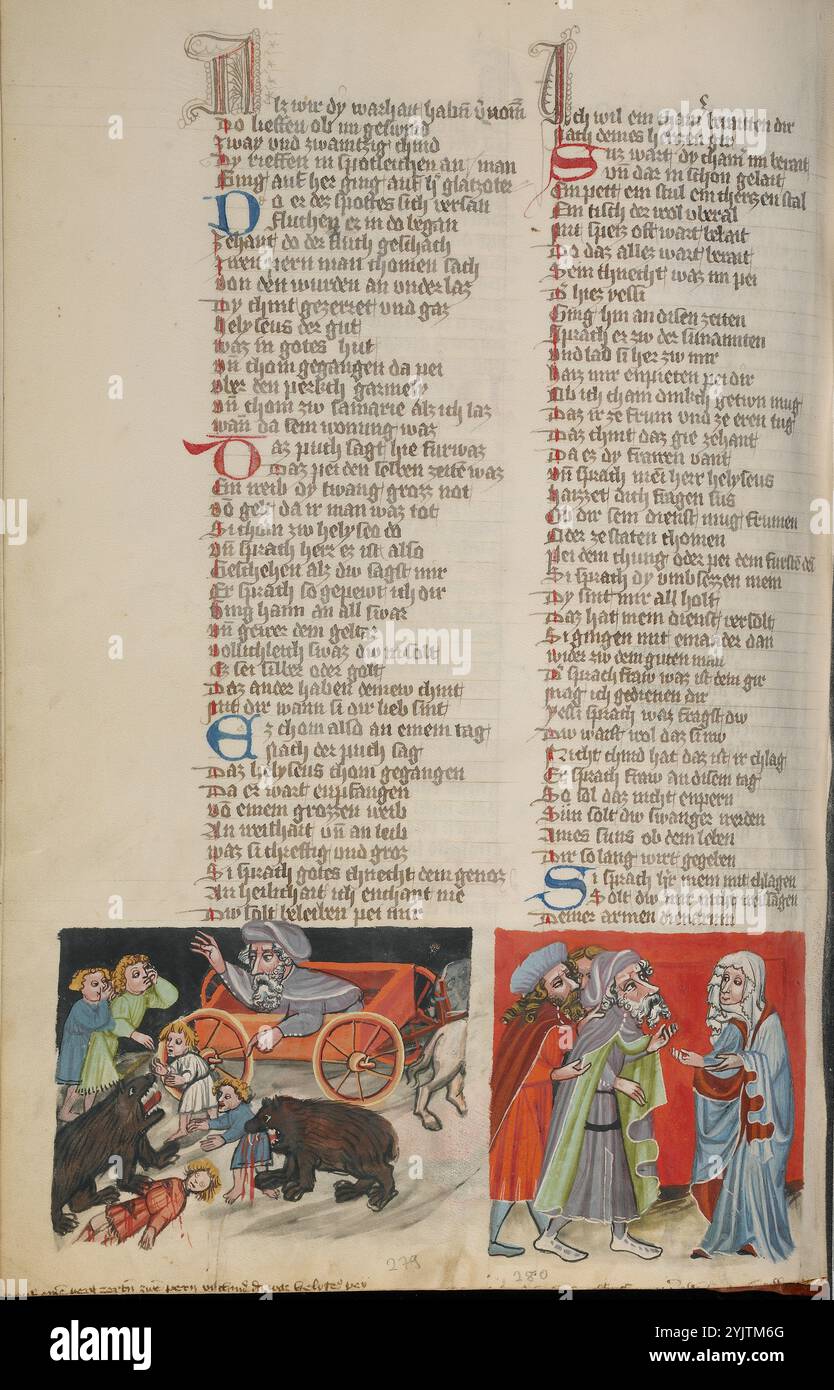 Alz wir dy warhait habn v̄nom̄
Do lieffen ob im geswind
Zway und zwaintzig chind
Dy rieffen in spotleichen an man
Ging auf her ging auf
Do er des spottes sich versan
Fluchen er in do began
Zehant do der fluch geschach
Zwen pern man chomen sach
Von den wurden an underlaz
Dy chint gezerret und gaz
Helyseus der gut
waz in gotes hut
vn̄ chom gegangen da pei
vber den perkch
vn̄ chom zw samarie alz ich laz
wan̄ da sein wonung waz
Daz puch sagt hie furwaz
Daz pei den selben zeite waz
Ein weib dy twang grozz not
vō gelt da ir man waz tot
Si chom zw helyseo do
vn̄ sprach herr ez ist also
Geschehen alz dw sagst mir
Er sprach so
Ging haim an all swar
vn̄ gewer dem gelter
vollichleich swaz dw im solt
Ez sei silber oder golt
Daz ander haben deinew chint
Mit dir wann si dir lieb sint
Ez chom also an einem tag
Nach der puch sag
Daz helyseus chom gegangen
Da er wart enpfangen
vō einem grozzen weib
An weishait vn̄ an leib
waz si chreftig und groz
Si sprach gotes chnecht dein genoz
An heilichait ich enchant nie
Dw solt beleiben pei mir
Ich wil ein cham̄ beraitten dir
Nach deines hertzen gir
Suz wart dy cham̄ im berait
vn̄ dar in schon gelait
Ein pett ein stul ein
Ein tisch der wol uberal
Mit speis oft wart belait
Do daz allez wart berait
Sein chnecht waz im pei
Der hiez yessi
Ging hin an disen zeiten
Sprach er zw der sunamiten
Und lad si her zw mir
Haiz mir enpieten pei dir
Ob ich chain dinkch getwn mug
Daz ir ze frum und ze eren tug
Daz chint daz gie zehant
Da ez dy frawen vant
vn̄ sprach mein herr helyseus
haizzet dich fragen sus
Ob dir sein dienst mug frumen
Oder ze staten chomen
Pei dem chung oder pei dem
Si sprach dy umbsezzen mein
Dy sint mir all holt
Daz hat mein dienst versolt
Si gingen mit einander dan
wider zw dem guten man
Der sprach fraw waz ist dein gir
mag ich gedienen dir
yessi sprach waz fragst dw
Dw waist wol daz si nw
Nicht chind hat daz ist ir chlag
Er sprach fraw an disem tag
So sol daz nicht enpern
Sun solt dw swanger werden
Aines suns ob dem leben
Dir so lang wirt gegeben
Si sprach herr mein mit chlagen
Solt dw mir nicht versagen
Deiner armen dienerinn
279
280
alamy
Image ID: 2YJTM6G
www.alamy.com